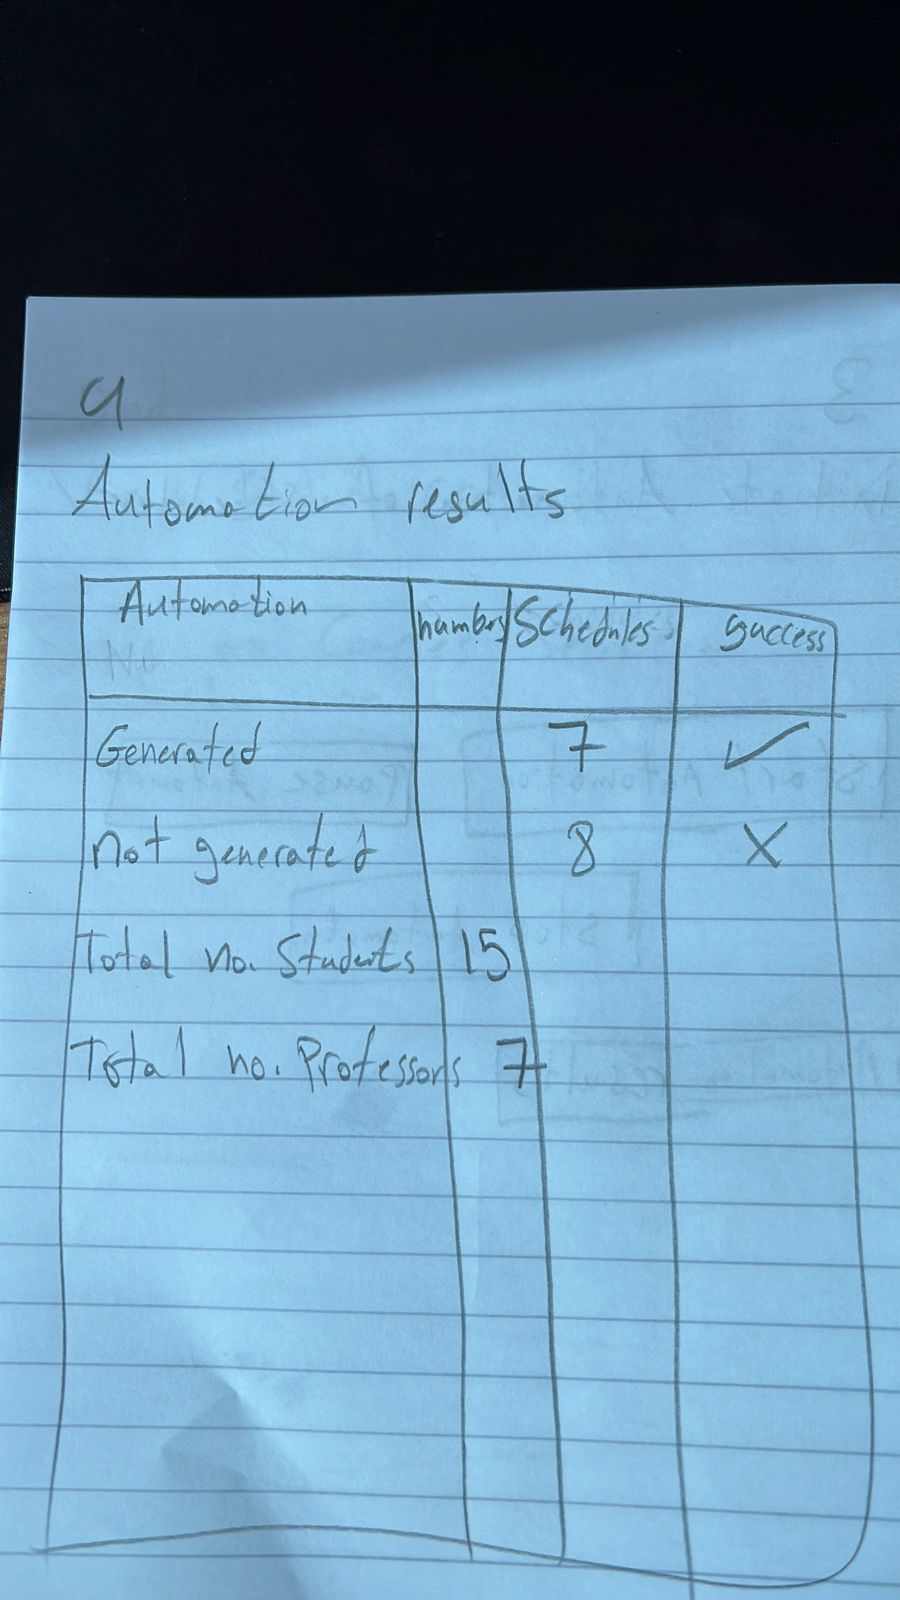 4
Automation results
Automation numbers Schedules success
Generated 7 ✓
not generated 8 X
Total no. Students 15
Total no. Professors 7